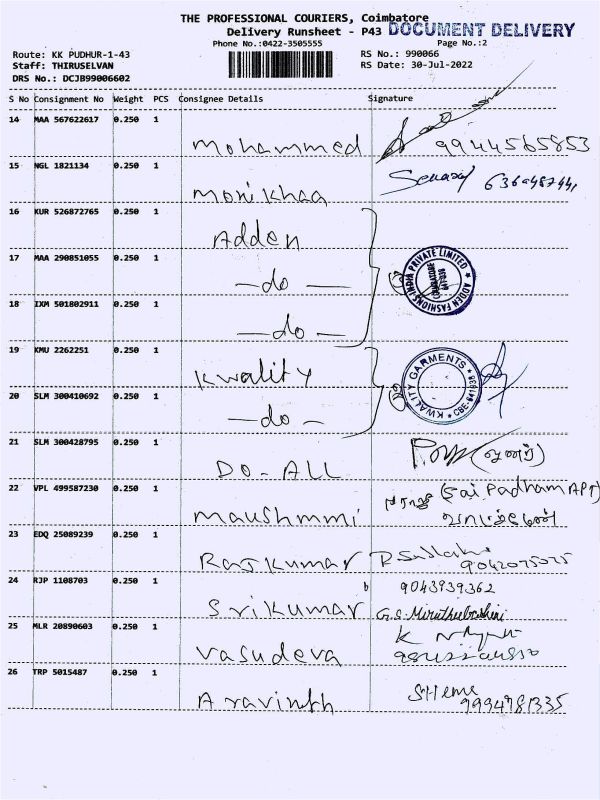 THE PROFESSIONAL COURIERS, Coimbatore
Delivery Runsheet - P43 DOCUMENT DELIVERY
Phone No.:0422-3505555 Page No.:2
Route: KK PUDHUR-1-43 RS No.: 990066
Staff: THIRUSELVAN RS Date: 30-Jul-2022
DRS No.: DCJB99006602
S No Consignment No Weight PCS Consignee Details Signature
14 MAA 567622617 0.250 1
Mohammed 9944565853
15 NGL 1821134 0.250 1
Monikhaa
16 KUR 526872765 0.250 1
Adden
17 MAA 290851055 0.250 1
— do —
ADDEN FASHIONS INDIA PRIVATE LIMITED
COIMBATORE
18 IXM 501802911 0.250 1
— do —
19 KMU 2262251 0.250 1
Kwality
KWALITY GARMENTS
20 SLM 300410692 0.250 1
— do -
21 SLM 300428795 0.250 1
DO-ALL
22 VPL 499587230 0.250 1
(Sai Padham APT)
Maushmmi
23 EDQ 25089239 0.250 1
Rajkumar 9042075075
24 RJP 1108703 0.250 1
9043939362
Srikumar G.S.
25 MLR 20890603 0.250 1
Vasudeva
26 TRP 5015487 0.250 1
Aravinth 9994781335